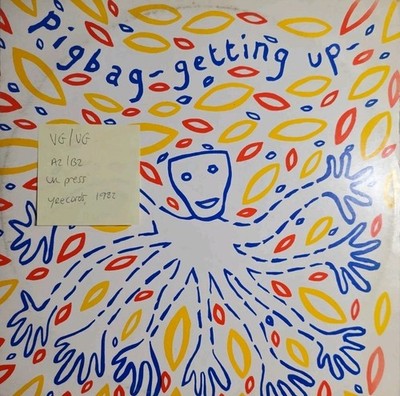 pigbag-getting up-
VG/VG
A2/B2
UK press
Y records, 1982